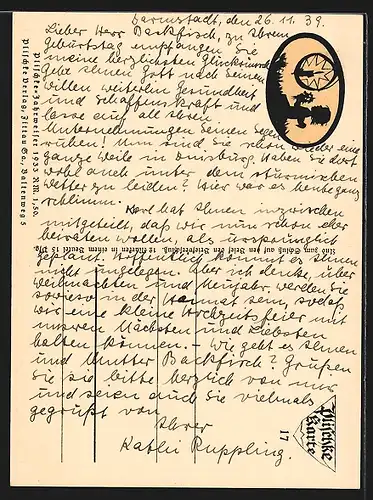 Darmstadt, den 26.11.39.
Lieber Herr Backfisch, zu Ihrem
Geburtstag empfangen Sie
meine herzlichsten Glückwünsche.
Gebe Ihnen Gott nach seinem
Willen weiterhin Gesundheit
und Schaffenskraft und
lasse auf all Ihren
Unternehmungen Seinen Segen
ruhen! Nun sind Sie schon wieder eine
ganze Weile in Duisburg. Haben Sie dort
wohl auch unter dem stürmischen
Wetter zu leiden? Hier war es heute ganz
schlimm.
Karl hat Ihnen inzwischen
mitgeteilt, daß wir nun schon eher
heiraten wollen, als ursprünglich
geplant. Hoffentlich kommt es Ihnen
nicht ungelegen. Aber ich denke, über
Weihnachten und Neujahr werden Sie
sowieso in der Heimat sein, sodaß
wir eine kleine Hochzeitsfeier mit
unseren Nächsten und Liebsten
halten können. – Wie geht es Ihnen
und Mutter Backfisch? Grüßen
Sie sie bitte herzlich von mir
und seien auch Sie vielmals
gegrüßt von
Ihrer
Kathi Ruppling.
Plischke-Jahrweiser 1933 RM. 1,50.
Plischke Verlag, Zittau Sa., Baltenweg 5
17
Plischke
Karte